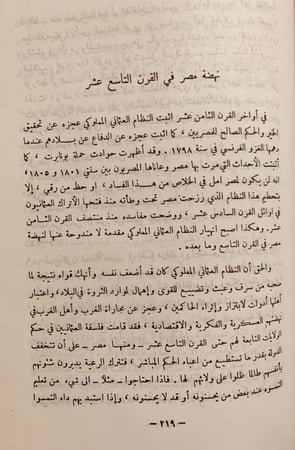 نهضة مصر في القرن التاسع عشر
في أواخر القرن الثامن عشر اثبت النظام العثماني المملوكي عجزه عن تحقيق
الخير والحكم الصالح للمصريين ، كما اثبت عجزه عن الدفاع عن بـــلادهم عندما
دهمها الغزو الفرنسي في سنة ١٧٩٨ . وقد أظهرت حوادث حملة بونابرت ، كما
أثبتت الأحداث التي مرت بها مصر وعاناها المصريون بين سنتي ١٨٠١ و ١٨٠٥،
انه لن يكون لمصر امل في الخلاص من هـــذا الفساد ، او حظ من رقي ، إلا
بتحطيم هذا النظام الذي رزحت مصر تحت وطأته منذ فتحها الأتراك العثمانيون
في اوائل القرن السادس عشر ، ووضحت مفاسده منذ منتصف القرن الثامن
عشر . وهكذا اصبح انهيار النظام العثماني المملوكي مقدمة لا مندوحة عنها لنهضة
مصر في القرن التاسع وما بعده .
والحق أن النظام العثماني المملوكي كان قد أضعف نفسه وأنهك قواه نتيجة لما
صحبه من سرف وعبث وتضييع للقوى وإهمال لموارد الثروة في البلاد، واعتبار
أهلها أدوات لابتزاز وإثراء الحاكمين ، وعجز عن مجاراة الغرب وأهل الغرب في
نهضتهم العسكرية والفكرية والاقتصادية ، فقد قامت فلسفة العثمانيين في حكم
الولايات التابعة لهم حتى القرن التاسع عشر ـ ومنهــا مصر ـ على أن تتخفف
الدولة بقدر ما تستطيع من اعباء الحكم المباشر ، فتترك الرعية يدبرون شئونهم
بأنفسهم طالما ظلوا على ولائهم لها . فاذا احتاجوا ـ مثلا ـ الى شيء من تعليم
التمسوه عند بعض من يحسنونه أو قد لا يحسنونه ، وإذا استبد بهم داء التمسوا
— ٢١٩ —